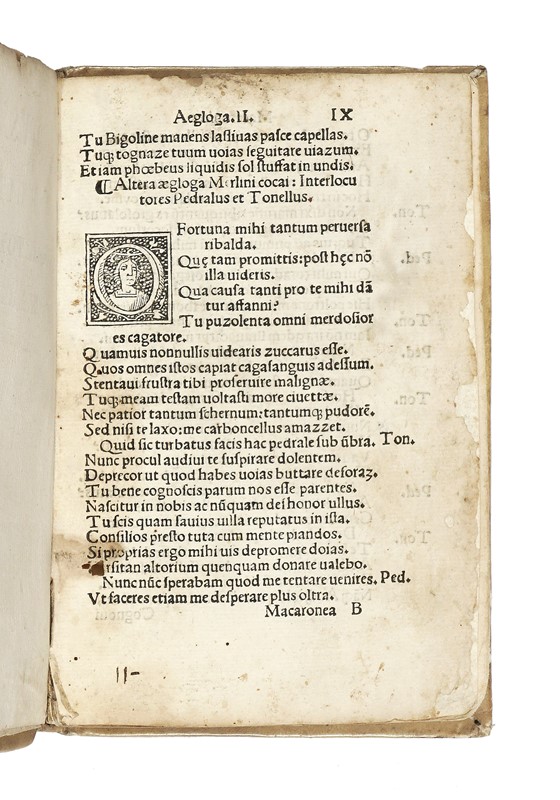 Aegloga.II. IX
Tu Bigoline manens lasciuas pasce capellas.
Tuqꝫ tognaze tuum uoias seguitare uiazum.
Et iam phœbeus liquidis sol stuffat in undis.
Altera ægloga Merlini cocai: Interlocu
tores Pedralus et Tonellus.
O Fortuna mihi tantum peruersa
ribalda.
Quę tam promittis: post hęc nō
illa uideris.
Qua causa tanti pro te mihi dā
tur affanni?
Tu puzolenta omni merdosior
es cagatore.
Quamuis nonnullis uidearis zuccarus esse.
Quos omnes istos capiat cagasanguis adessum.
Stentaui frustra tibi proseruire malignæ.
Tuqꝫ meam testam uoltasti more ciuettæ.
Nec patior tantum schernum: tantumqꝫ pudorē.
Sed nisi te laxo: me carboncellus amazzet.
Quid sic turbatus facis hac pedrale sub ūbra. Ton.
Nunc procul audiui te suspirare dolentem.
Deprecor ut quod habes uoias buttare deforaz.
Tu bene cognoscis parum nos esse parentes.
Nascitur in nobis ac nūquam dei honor ullus.
Tu scis quam sauius uilla reputatus in ista.
Consilios p̄resto tuta cum mente piandos.
Si proprias ergo mihi uis depromere doias.
rsitan altorium quenquam donare ualebo.
Nunc nūc sperabam quod me tentare uenires. Ped.
Vt faceres etiam me desperare plus oltra.
Macaronea B
11-